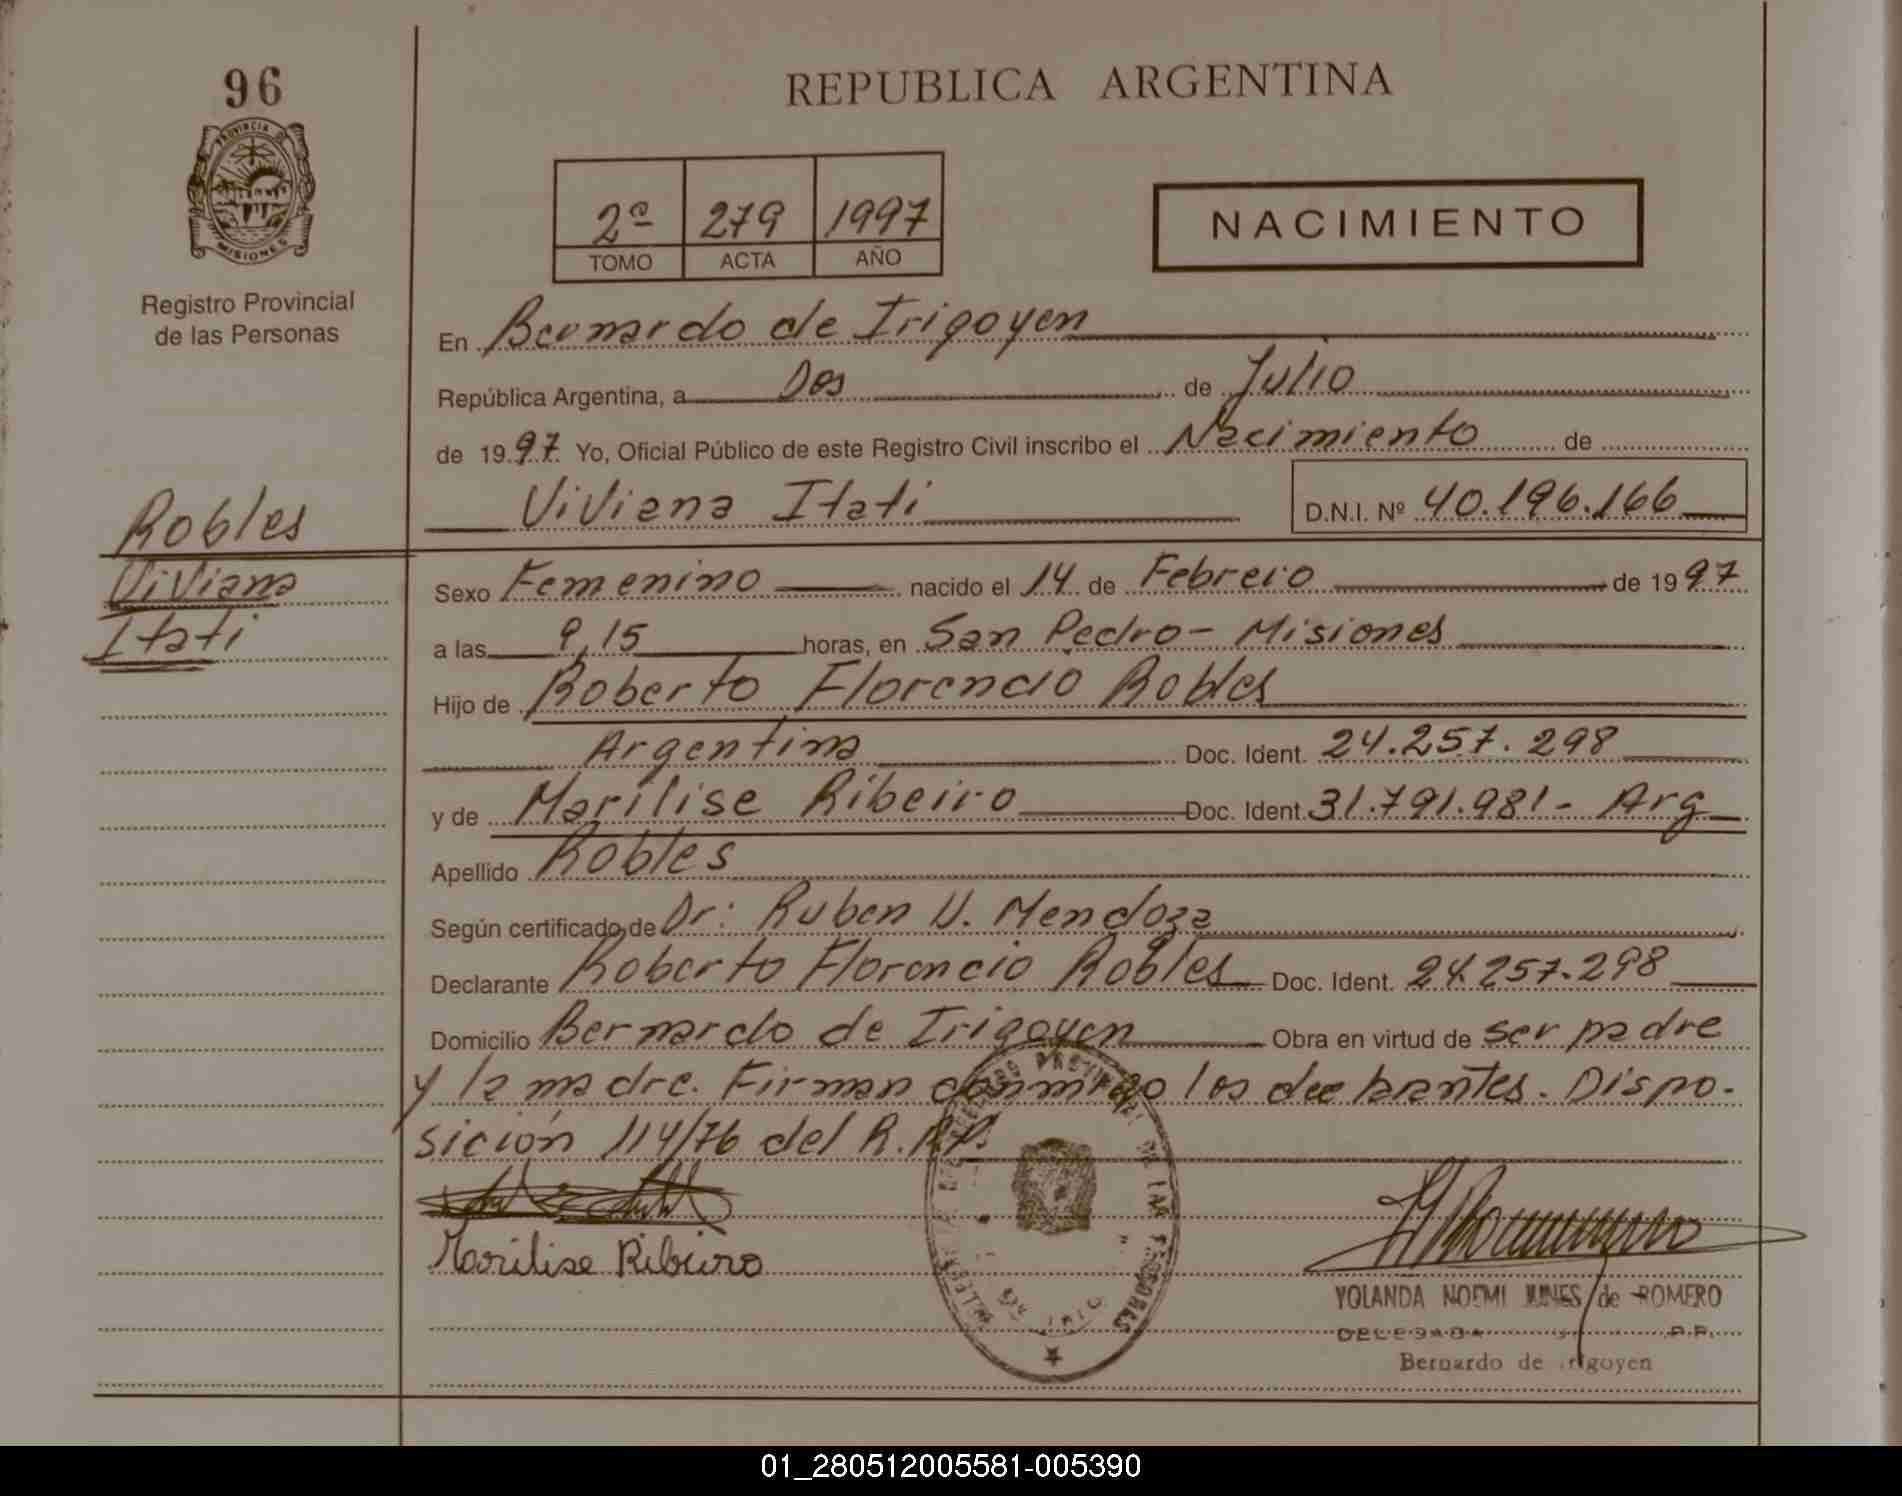 96
REPUBLICA ARGENTINA
PROVINCIA DE
MISIONES
Registro Provincial
de las Personas
2º 279 1997
TOMO ACTA AÑO
NACIMIENTO
En Bernardo de Irigoyen
República Argentina, a Dos de Julio
de 1997 Yo, Oficial Público de este Registro Civil inscribo el Nacimiento de
Viviana Itati D.N.I. Nº 40.196.166
Robles
Viviana
Itati
Sexo Femenino nacido el 14 de Febrero de 1997
a las 9,15 horas, en San Pedro - Misiones
Hijo de Roberto Florencio Robles
Argentina Doc. Ident. 24.257.298
y de Marilise Ribeiro Doc. Ident. 31.791.981 - Arg
Apellido Robles
Según certificado de Dr: Ruben U. Mendoza
Declarante Roberto Florencio Robles Doc. Ident. 24.257.298
Domicilio Bernardo de Irigoyen Obra en virtud de ser padre
y la madre. Firman conmigo los declarantes. Dispo-
sición 114/76 del R.P.P.
Marilise Ribeiro
YOLANDA NOEMI de ROMERO
DELEGADA
Bernardo de Irigoyen
01_280512005581-005390